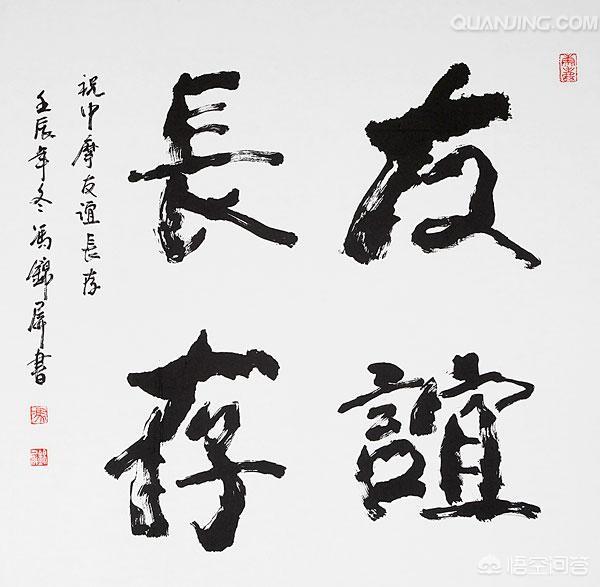 友誼
長存
祝中摩友誼長存
壬辰年冬馮錦屏書
QUANJING.COM
悟空问答